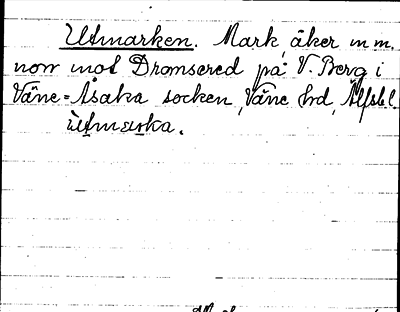 Utmarken. Mark åker m m.
norr mot Dromsered på V. Berg i
Väne-Åsaka socken, Väne hd, Älfsbl.
ùtmaṛka.